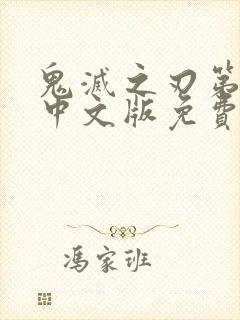 鬼滅之刃第
中文版免費
馮家班